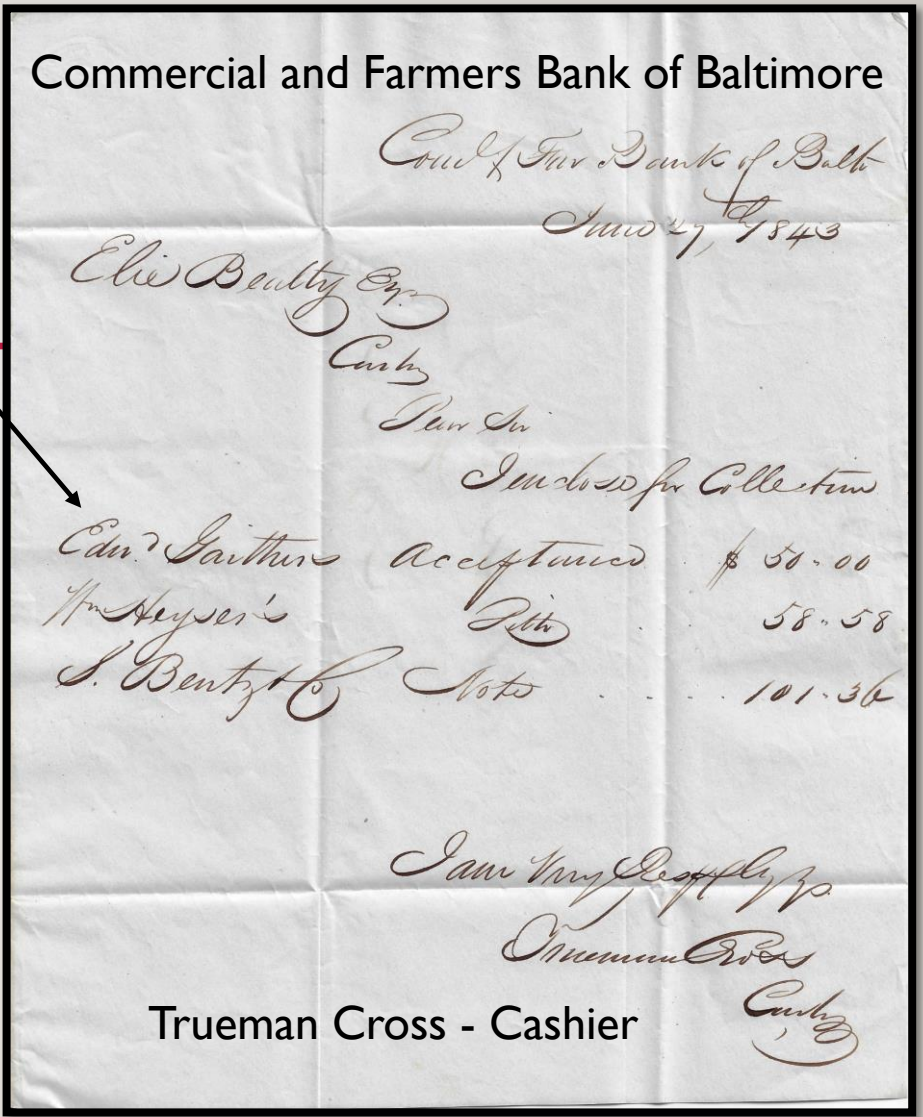 Commercial and Farmers Bank of Baltimore
Coml & Far Bank of Balto
June 27, 1843
Elie Beatty Esq.
Cashr
Dear Sir
I enclose for Collection
Edwd Gaither's Acceptance $ 50.00
Wm Heyser's Ditto . 58.58
S. Bentz & Co Note . . . . 101.36
I am Very Respfly yrs
Trueman Cross
Cashr
Trueman Cross - Cashier